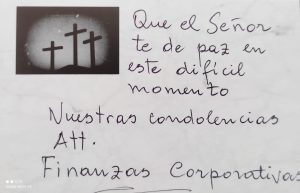 Que el Señor
te de paz en
este difícil
momento
Nuestras condolencias
Att.
Finanzas Corporativas